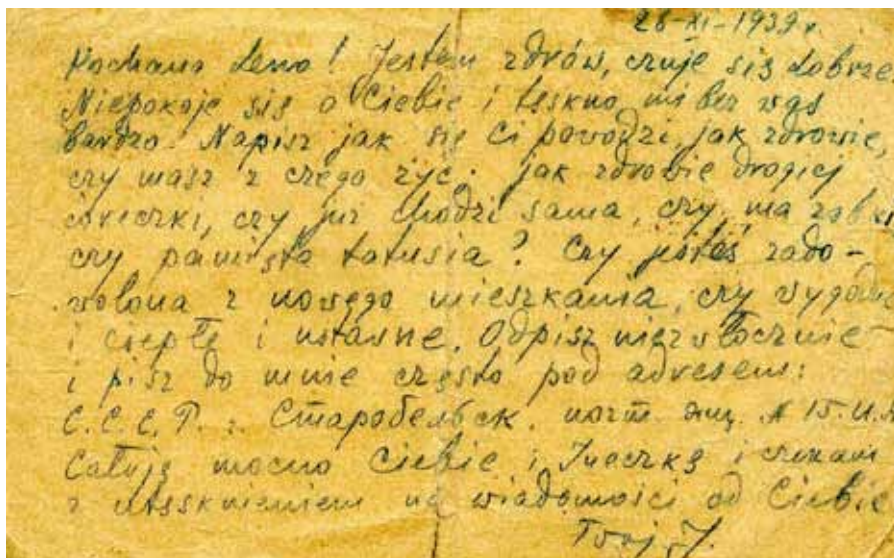 28-XI-1939 r.
Kochana Leno! Jestem zdrów, czuje się dobrze
Niepokoje się o Ciebie i teskno mi bez was
bardzo. Napisz jak się Ci powodzi, jak zdrowie,
czy masz z czego żyć. jak zdrowie drogiej
córeczki, czy już chodzi sama, czy ma ząbki,
czy pamięta tatusia? Czy jesteś zado-
wolona z nowego mieszkania, czy wygodne
i ciepłe i własne. Odpisz niezwłocznie
i pisz do mnie często pod adresem:
С.С.С.Р. Старобельск. почт. ящ. № 15.
Całuję mocno Ciebie i Ineczkę i czekam
z utęsknieniem na wiadomości od Ciebie
Twój J.